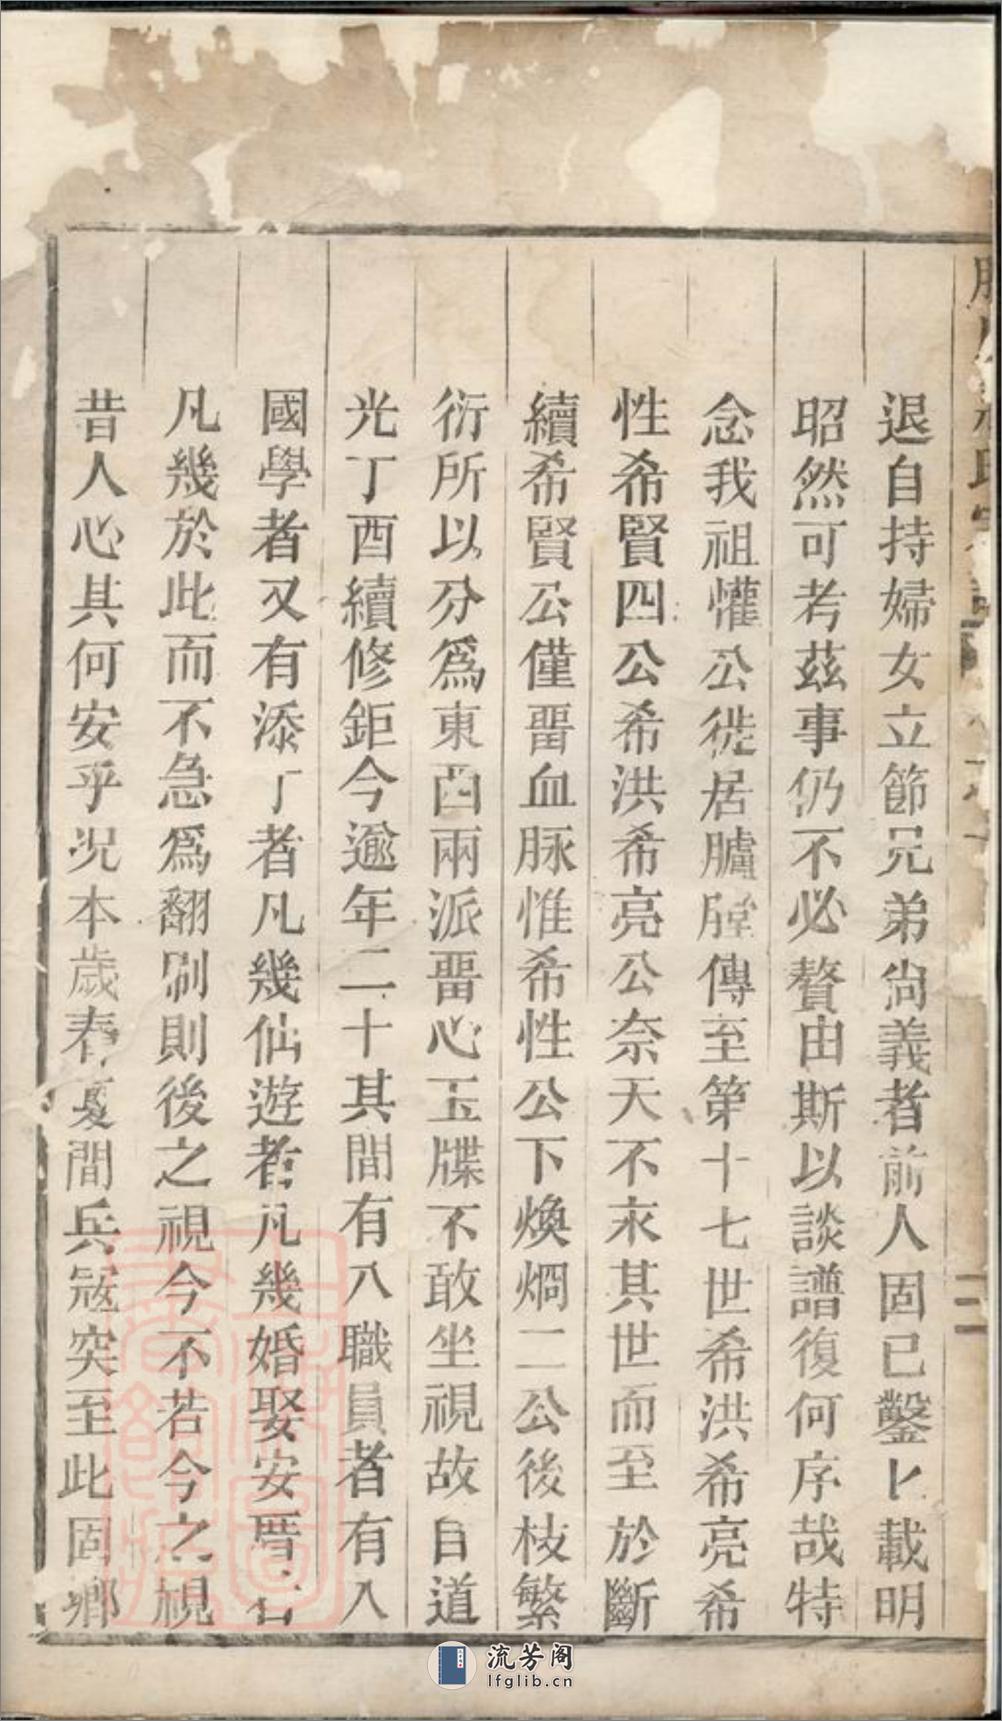 退自持婦女立節兄弟尙義者前人固已鑿匕載明
昭然可考茲事仍不必贅由斯以談譜復何序哉特
念我祖懽公徙居臚膛傳至第十七世希洪希亮希
性希賢四公希洪希亮公奈天不永其世而至於斷
續希賢公僅畱血脉惟希性公下煥烱二公後枝繁
衍所以分爲東酉兩派畱心玉牒不敢坐視故自道
光丁酉續修鉅今逾年二十其間有入職員者有入
國學者又有添丁者凡幾仙遊者凡幾婚娶安厝者
凡幾於此而不急爲翻刷則後之視今不若今之視
昔人心其何安乎况本歲春夏間兵寇突至此固鄉
二
流芳阁
lfglib.cn